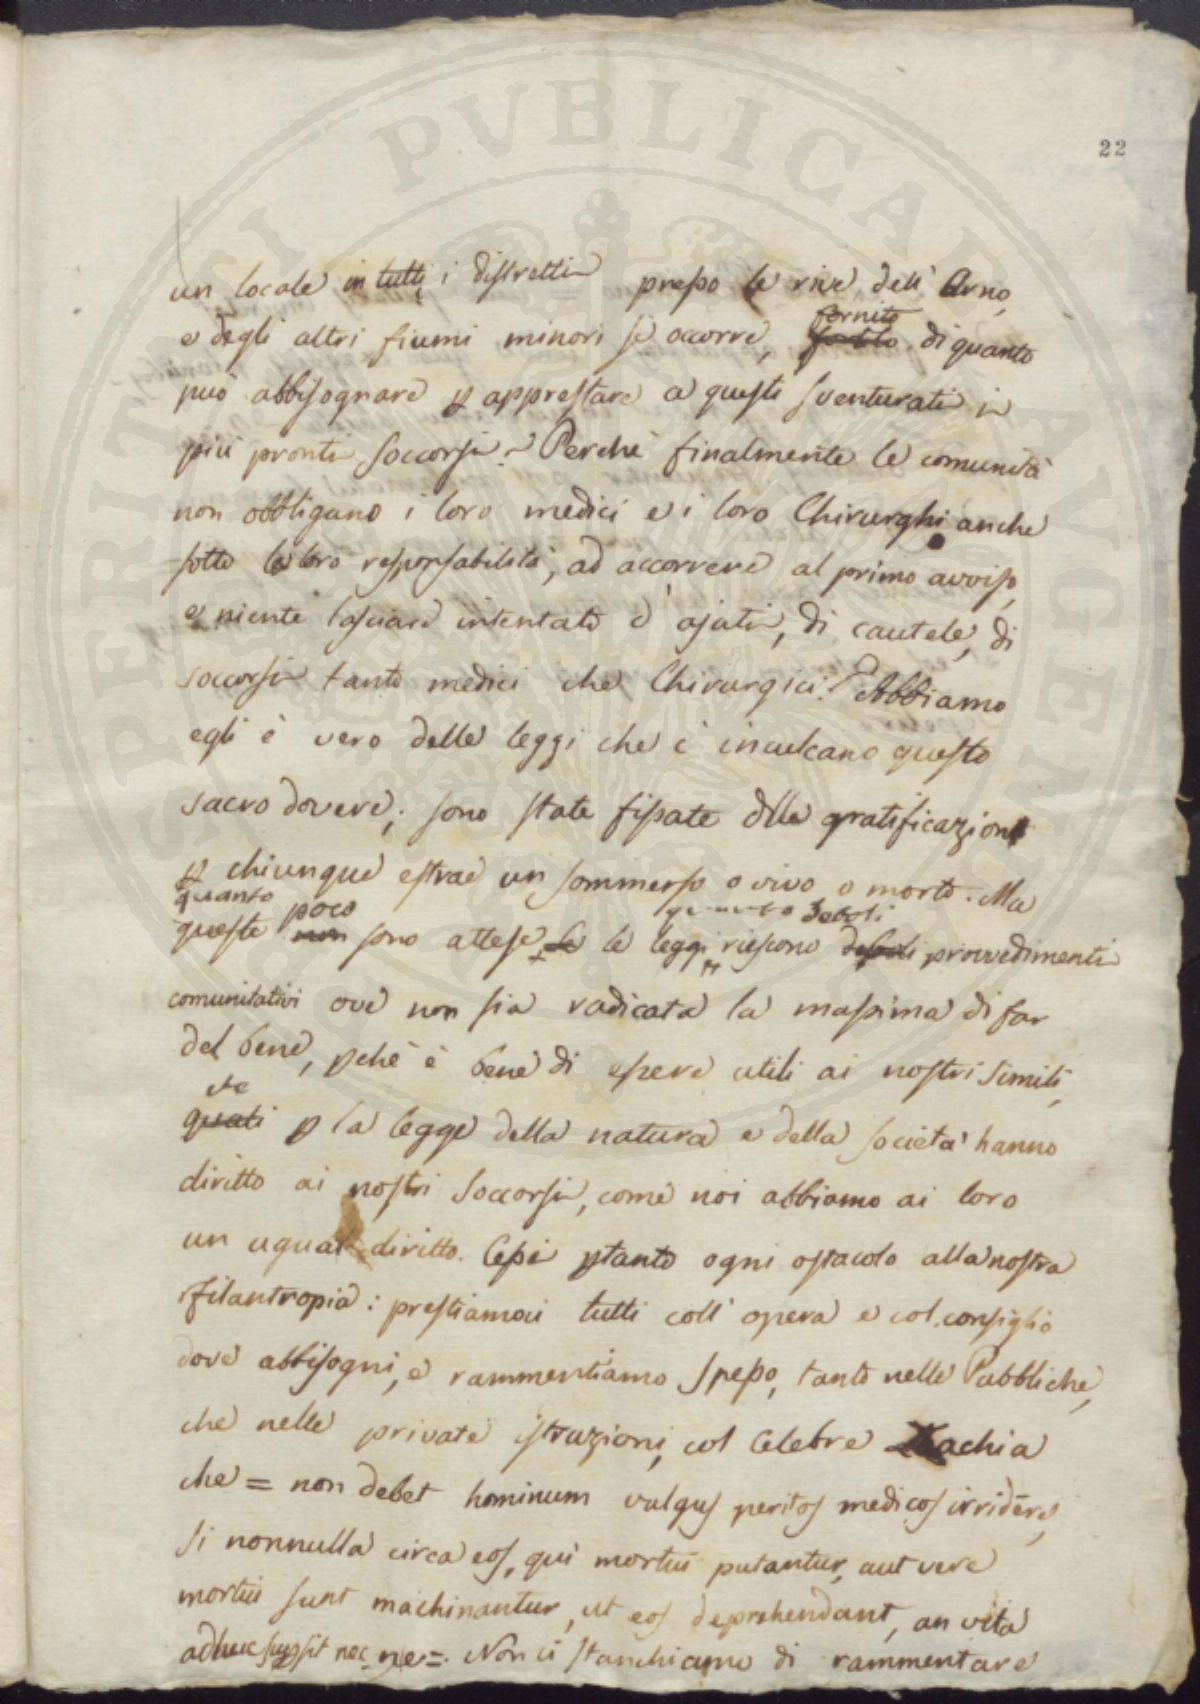 PROSPERITATI PVBLICAE AVGENDAE
22
un locale in tutti i distretti presso le rive dell' Arno,
e degli altri fiumi minori se occorre, fornito di quanto
può abbisognare p apprestare a questi sventurati i
più pronti soccorsi? Perchè finalmente le comunità
non obbligano i loro medici e i loro Chirurghi anche
sotto la loro responsabilità, ad accorrere al primo avviso,
e niente lasciare intentato d' ajuti, di cautele, di
soccorsi tanto medici che Chirurgici? Abbiamo
egli è vero delle leggi che c' inculcano questo
sacro dovere; sono state fissate delle gratificazioni
p chiunque estrae un sommerso o vivo o morto. Ma
quanto
queste poco non sono attese le leggi, quanto deboli riescono deboli provvedimenti
comunitativi ove non sia radicata la massima di far
del bene, pchè è bene di essere utili ai nostri simili,
che
quali p la legge della natura e della società hanno
diritto ai nostri soccorsi, come noi abbiamo ai loro
un ugual diritto. Cessi ptanto ogni ostacolo alla nostra
filantropia: prestiamoci tutti coll' opera e col consiglio
dove abbisogni, e rammentiamo spesso, tanto nelle Pubbliche,
che nelle private istruzioni, col celebre Zachia
che = non debet hominum vulgus peritos medicos irridere,
si nonnulla circa eos, qui mortui putantur, aut vere
mortui sunt machinantur, ut eos deprehendant, an vita
adhuc supsit nec ne =. Non ci stanchiamo di rammentare